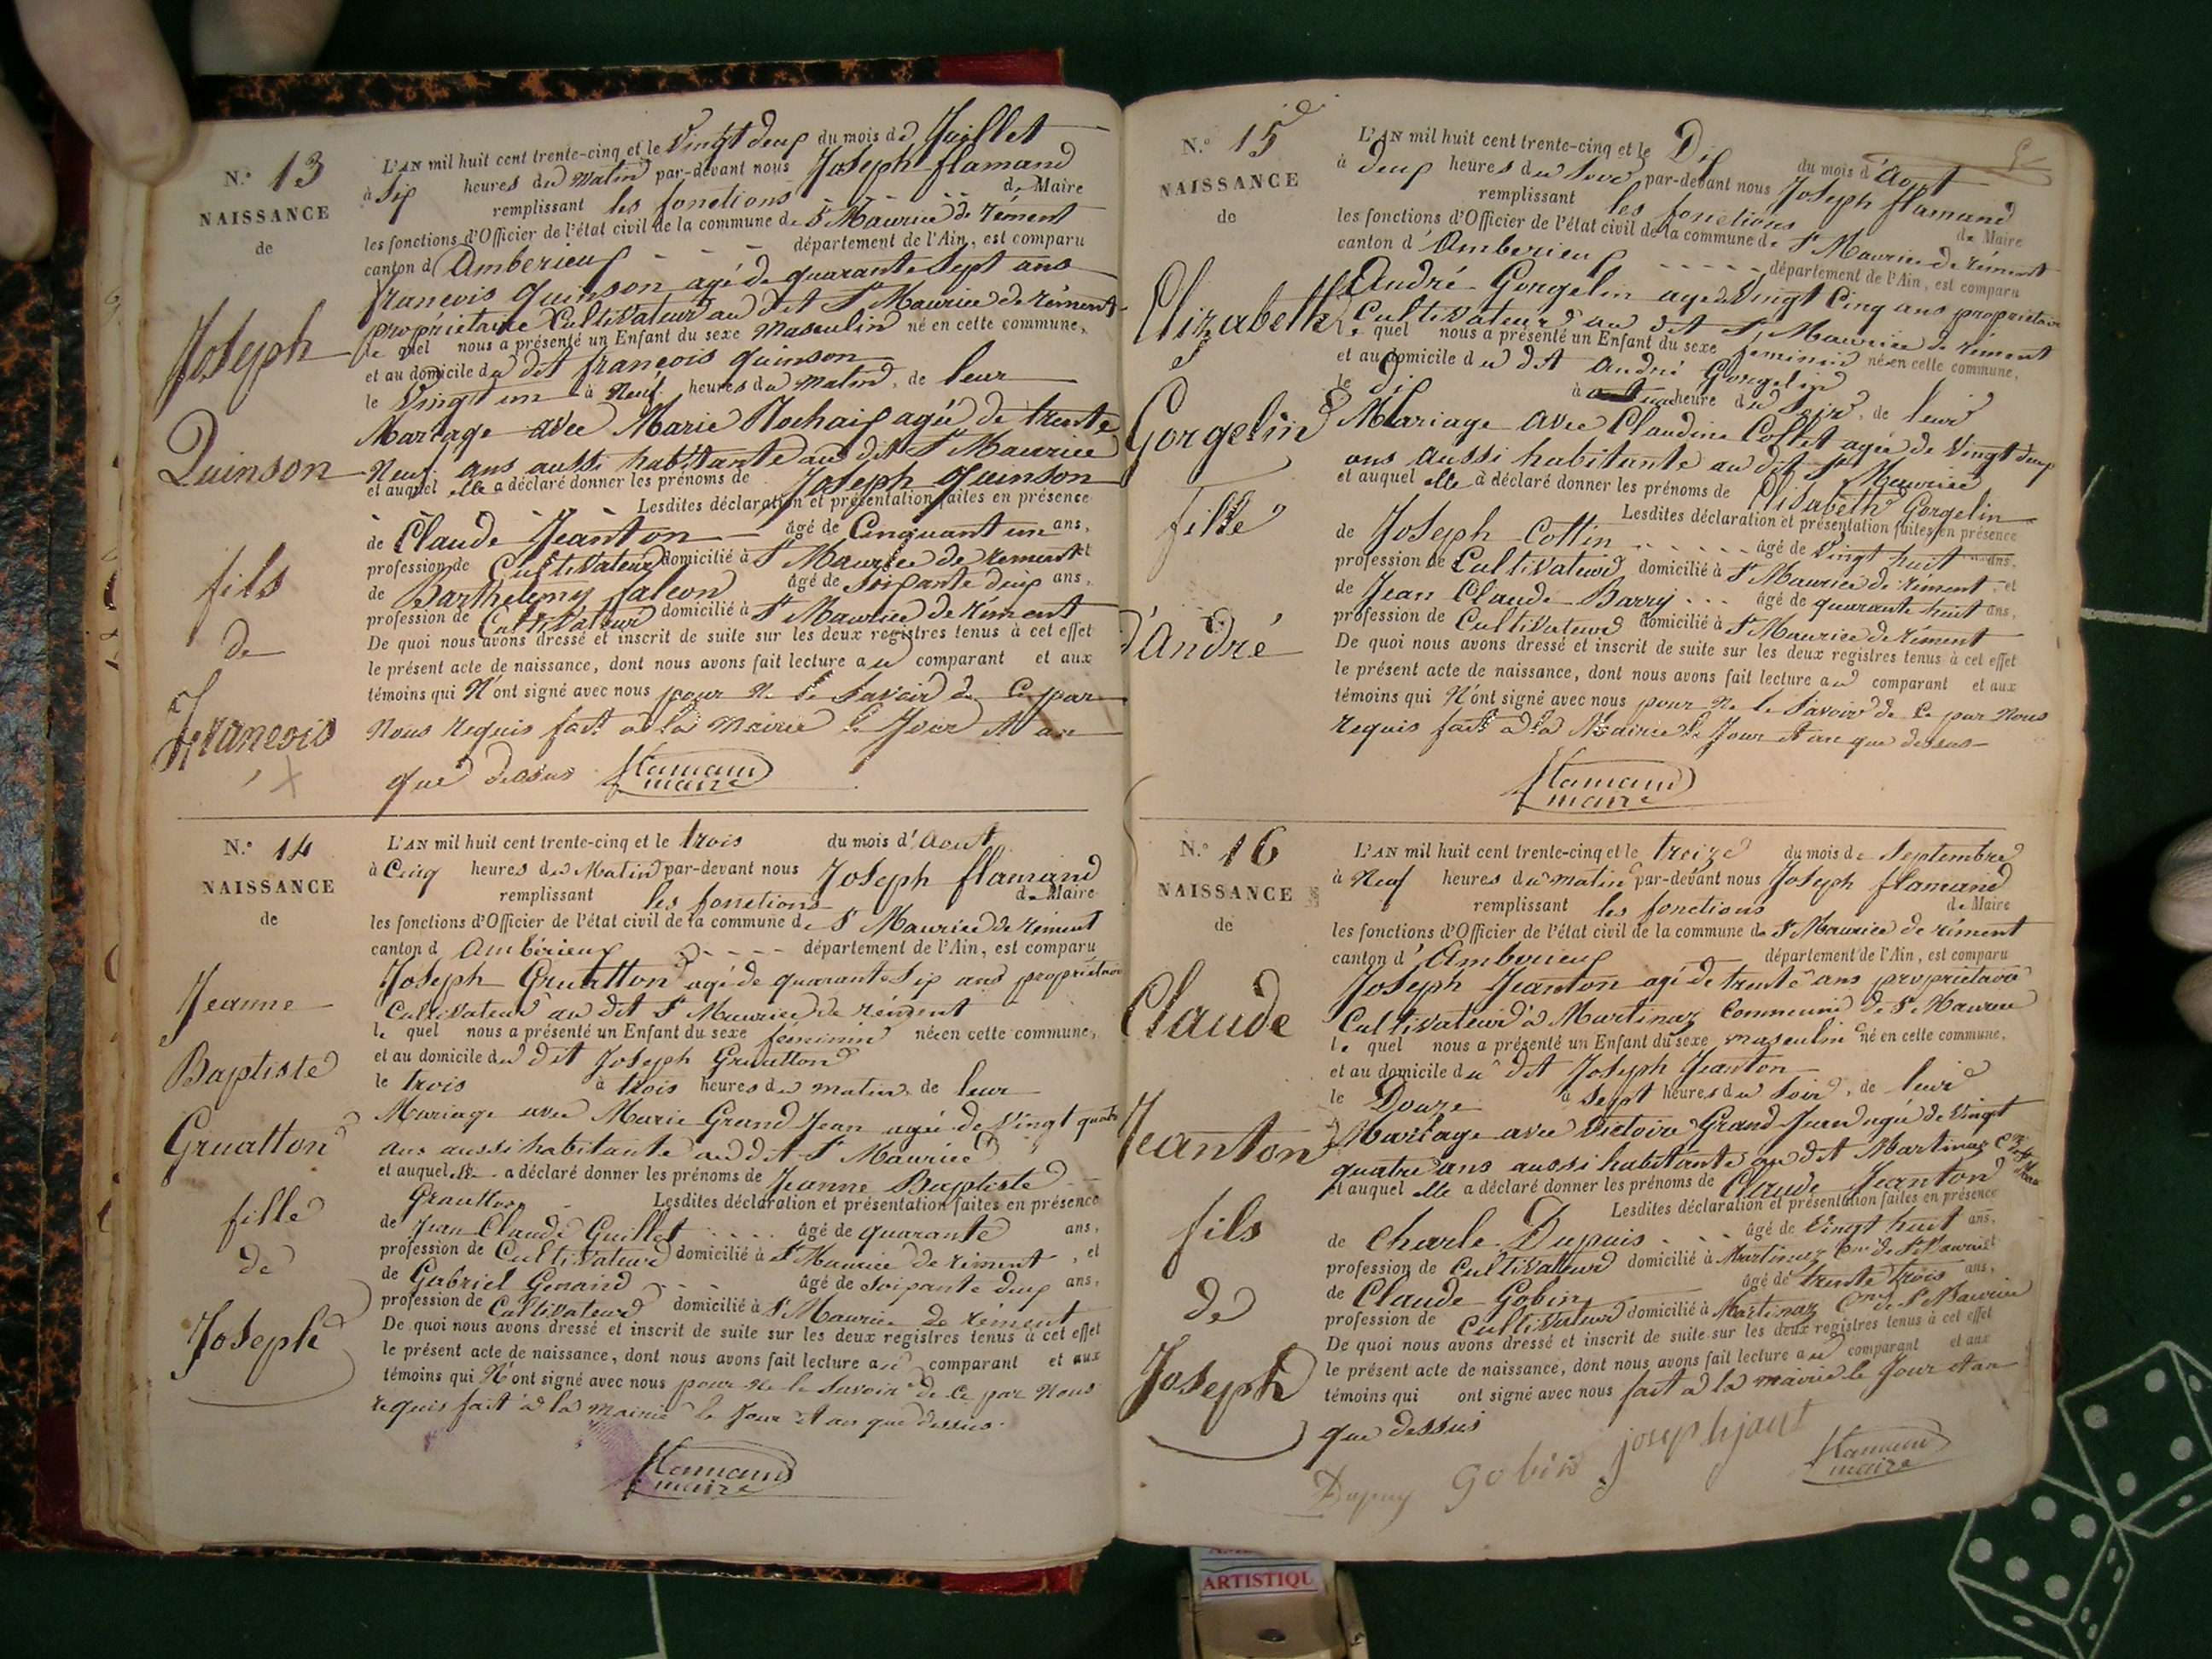 N.° 13
NAISSANCE
de
Joseph
Quinson
fils
de
François
L'AN mil huit cent trente-cinq et le Vingt deux du mois de Juillet
à Six heures du matin par-devant nous Joseph flamand
remplissant les fonctions de Maire
les fonctions d'Officier de l'état civil de la commune de St Maurice de rément
canton d'Amberieux département de l'Ain, est comparu
françois quinson agé de quarante Sept ans
propriétaire Cultivateur au dit St Maurice de rément
le quel nous a présenté un Enfant du sexe masculin né en cette commune,
et au domicile du dit françois quinson
le Vingt un à Neuf heures du matin, de leur
Mariage avec Marie Rochaix agée de trente
Neuf ans aussi habitante au dit St Maurice
et auquel elle a déclaré donner les prénoms de Joseph quinson
Lesdites déclaration et présentation faites en présence
de Claude Jeanton âgé de Cinquant un ans,
profession de Cultivateur domicilié à St Maurice de rément et
de Barthelemy falcon âgé de Soixante deux ans,
profession de Cultivateur domicilié à St Maurice de rément
De quoi nous avons dressé et inscrit de suite sur les deux registres tenus à cet effet
le présent acte de naissance, dont nous avons fait lecture au comparant et aux
témoins qui N'ont signé avec nous pour ne le Savoir de Ce par
Nous requis fait à la mairie le Jour et an
que dessus flamand
maire
N.° 14
NAISSANCE
de
Jeanne
Baptiste
Gruatton
fille
de
Joseph
L'AN mil huit cent trente-cinq et le trois du mois d'Aout
à Cinq heures du Matin par-devant nous Joseph flamand
remplissant les fonctions de Maire
les fonctions d'Officier de l'état civil de la commune de St Maurice de rément
canton d'Ambérieux département de l'Ain, est comparu
Joseph Gruatton agé de quarante Six ans propriétaire
Cultivateur au dit St Maurice de rément
le quel nous a présenté un Enfant du sexe féminin née en cette commune,
et au domicile du dit Joseph Gruatton
le trois à trois heures du matin, de leur
Mariage avec Marie Grand Jean agée de Vingt quatre
ans aussi habitante au dit St Maurice
et auquel elle a déclaré donner les prénoms de Jeanne Baptiste
Gruatton Lesdites déclaration et présentation faites en présence
de Jean Claude Guillet âgé de quarante ans,
profession de Cultivateur domicilié à St Maurice de rément, et
de Gabriel Genaind âgé de Soixante deux ans,
profession de Cultivateur domicilié à St Maurice de rément
De quoi nous avons dressé et inscrit de suite sur les deux registres tenus à cet effet
le présent acte de naissance, dont nous avons fait lecture au comparant et aux
témoins qui N'ont signé avec nous pour ne le Savoir de Ce par Nous
requis fait à la mairie le Jour et an que dessus.
flamand
maire
N.° 15
NAISSANCE
de
Elizabeth
Gorgelin
fille
d'André
L'AN mil huit cent trente-cinq et le Dix du mois d'Aout
à deux heures du Soir par-devant nous Joseph flamand
remplissant les fonctions de Maire
les fonctions d'Officier de l'état civil de la commune de St Maurice de rément
canton d'Amberieux département de l'Ain, est comparu
André Gorgelin agé de Vingt Cinq ans propriétaire
Cultivateur au dit St Maurice de rément
le quel nous a présenté un Enfant du sexe feminin née en cette commune,
et au domicile du dit André Gorgelin
le dix à heure du Soir, de leur
Mariage avec Claudine Collet agée de Vingt deux
ans aussi habitante au dit St Maurice
et auquel elle a déclaré donner les prénoms de Elisabeth Gorgelin
Lesdites déclaration et présentation faites en présence
de Joseph Cottin âgé de Vingt huit ans,
profession de Cultivateur domicilié à St Maurice de rément, et
de Jean Claude Barry âgé de quarante huit ans,
profession de Cultivateur domicilié à St Maurice de rément
De quoi nous avons dressé et inscrit de suite sur les deux registres tenus à cet effet
le présent acte de naissance, dont nous avons fait lecture au comparant et aux
témoins qui N'ont signé avec nous pour ne le Savoir de Ce par Nous
requis fait à la Mairie le Jour et an que dessus
flamand
maire
N.° 16
NAISSANCE
de
Claude
Jeanton
fils
de
Joseph
L'AN mil huit cent trente-cinq et le treize du mois de Septembre
à Neuf heures du matin par-devant nous Joseph flamand
remplissant les fonctions de Maire
les fonctions d'Officier de l'état civil de la commune de St Maurice de rément
canton d'Amberieux département de l'Ain, est comparu
Joseph Jeanton agé de trente ans propriétaire
Cultivateur à Martinaz Commune de St Maurice
le quel nous a présenté un Enfant du sexe masculin né en cette commune,
et au domicile du dit Joseph Jeanton
le Douze à Sept heures du Soir, de leur
Mariage avec Victoire Grand Jean agée de Vingt
quatre ans aussi habitante au dit Martinaz
et auquel elle a déclaré donner les prénoms de Claude Jeanton
Lesdites déclaration et présentation faites en présence
de Charle Dupuis âgé de Vingt huit ans,
profession de Cultivateur domicilié à Martinaz Cne de St Maurice et
de Claude Gobin âgé de trente trois ans,
profession de Cultivateur domicilié à Martinaz Cne de St Maurice
De quoi nous avons dressé et inscrit de suite sur les deux registres tenus à cet effet
le présent acte de naissance, dont nous avons fait lecture au comparant et aux
témoins qui ont signé avec nous fait à la mairie le Jour et an
que dessus
Dupuy Gobin joseph jant flamand
maire
ARTISTIQU